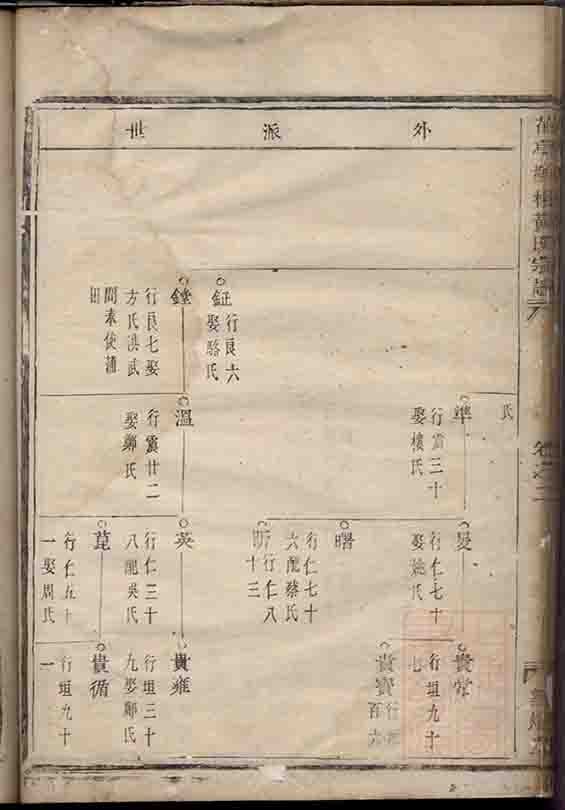 外派世
氏
準
行震三十
娶樓氏
晏
行仁七十
娶姚氏
貴常
行垣九十
七
曙
行仁七十
六配蔡氏
貴寶
行垣
百六
昕
行仁八
十三
鉦
行良六
娶駱氏
行良七娶
方氏洪武
間末使蒲
田
溫
行震廿二
娶鄭氏
英
行仁三十
八配吳氏
貴雍
行垣三十
九娶鄭氏
莨
行仁五十
一娶周氏
貴循
行垣九十
一